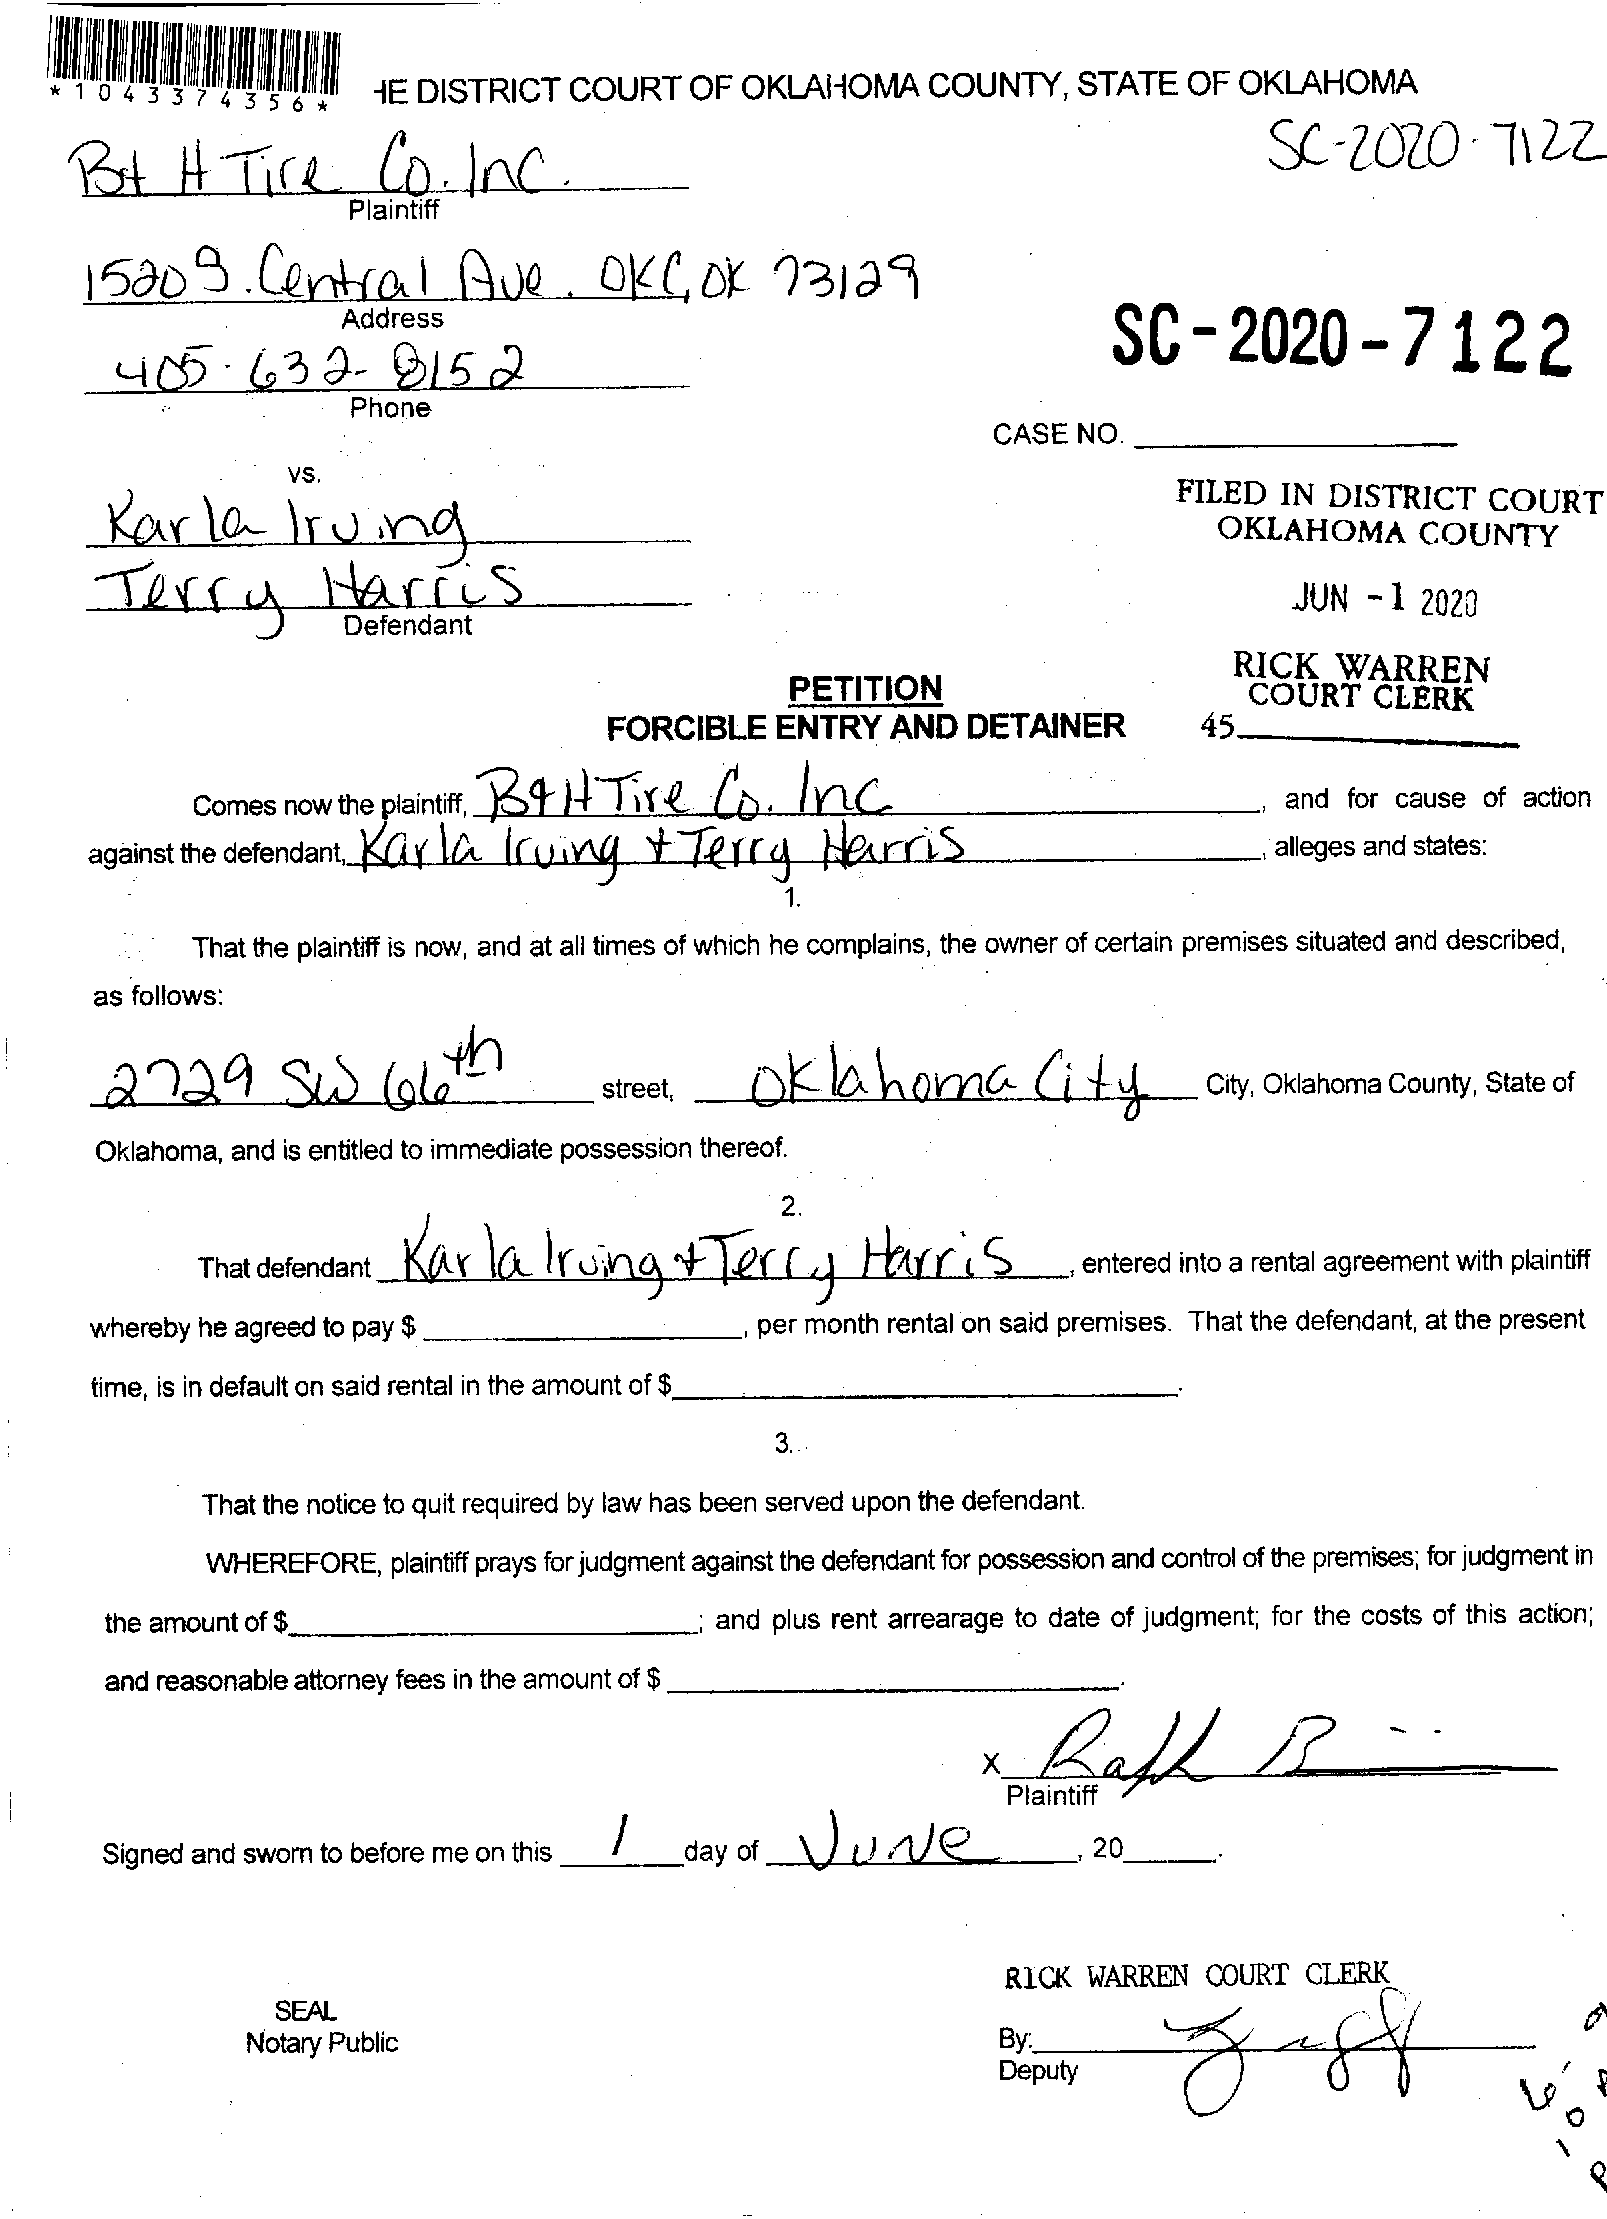 *1043374356*
HE DISTRICT COURT OF OKLAHOMA COUNTY, STATE OF OKLAHOMA
SC-2020-7122
B+H Tire Co. Inc.
Plaintiff
1520 S. Central Ave. OKC, OK 73129
Address
SC-2020-7122
405-632-8152
Phone
CASE NO.
vs.
FILED IN DISTRICT COURT
OKLAHOMA COUNTY
Karla Irving
Terry Harris
Defendant
JUN -1 2020
RICK WARREN
COURT CLERK
45
PETITION
FORCIBLE ENTRY AND DETAINER
Comes now the plaintiff, B&H Tire Co. Inc, and for cause of action
against the defendant, Karla Irving + Terry Harris, alleges and states:
1.
That the plaintiff is now, and at all times of which he complains, the owner of certain premises situated and described,
as follows:
2729 SW 66th street, Oklahoma City City, Oklahoma County, State of
Oklahoma, and is entitled to immediate possession thereof.
2.
That defendant Karla Irving + Terry Harris, entered into a rental agreement with plaintiff
whereby he agreed to pay $, per month rental on said premises. That the defendant, at the present
time, is in default on said rental in the amount of $.
3.
That the notice to quit required by law has been served upon the defendant.
WHEREFORE, plaintiff prays for judgment against the defendant for possession and control of the premises; for judgment in
the amount of $; and plus rent arrearage to date of judgment; for the costs of this action;
and reasonable attorney fees in the amount of $.
x Ralph
Plaintiff
Signed and sworn to before me on this 1 day of June, 20.
RICK WARREN COURT CLERK
SEAL
Notary Public
By:
Deputy